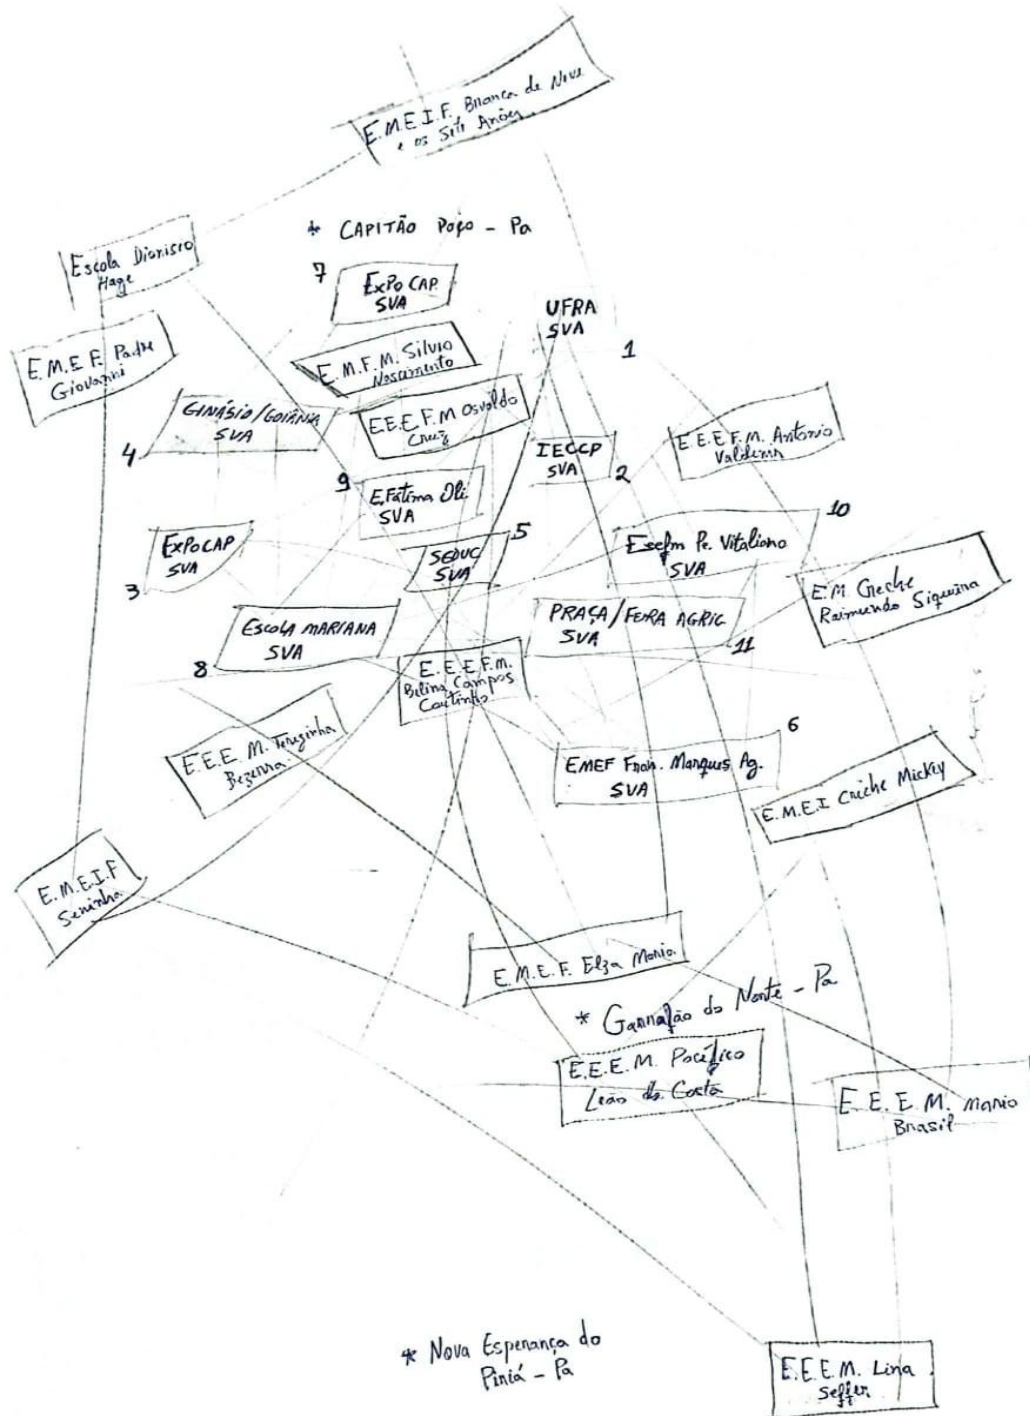 E.M.E.I.F. Branca de Neve
e os Sete Anões
* CAPITÃO POÇO - Pa
Escola Dionisio
Hage
7
EXPOCAP.
SVA
UFRA
SVA
1
E.M.E.F. Padre
Giovanni
E.M.F.M. Silvio
Nascimento
GINÁSIO/GOIÂNIA
SVA
4
E.E.E.F.M Osvaldo
Cruz
IECCP
SVA
2
E.E.E.F.M. Antonio
Valdemir
9
E.Fátima Oli.
SVA
10
EXPOCAP
SVA
3
5
SEDUC
SVA
Eeefm Pe. Vitaliano
SVA
E.M. Creche
Raimundo Siqueira
ESCOLA MARIANA
SVA
8
PRAÇA/FEIRA AGRIC
SVA
11
E.E.E.F.M.
Belina Campos
Coutinho
E.E.E.M. Terezinha
Bezerra.
6
EMEF Fran. Marques Ag.
SVA
E.M.E.I Creche Mickey
E.M.E.I.F
Seninha
E.M.E.F. Elza Maria.
* Garrafão do Norte - Pa
E.E.E.M. Pacífico
Leão da Costa
E.E.E.M. Mario
Brasil
* Nova Esperança do
Piriá - Pa
E.E.E.M. Lina
Seffer